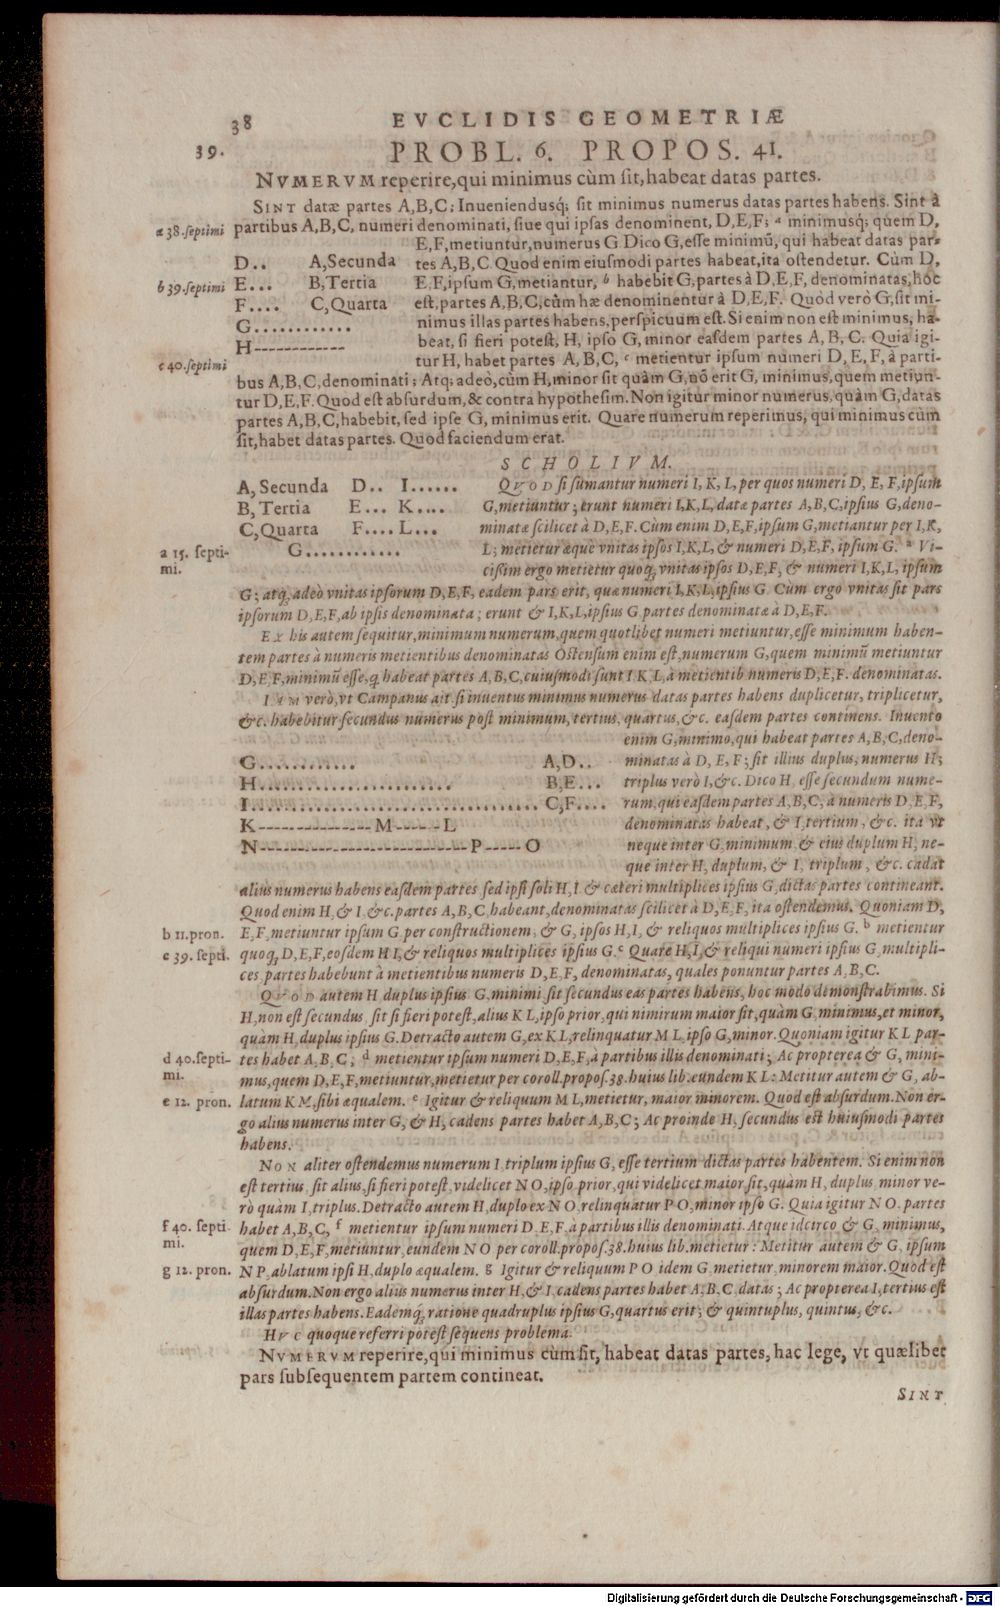 38 EVCLIDIS GEOMETRIÆ
39. PROBL. 6. PROPOS. 41.
NVMERVM reperire, qui minimus cùm ſit, habeat datas partes.
SINT datæ partes A, B, C; Inueniendusq́; ſit minimus numerus datas partes habens. Sint à
a 38. ſeptimi partibus A, B, C, numeri denominati, ſiue qui ipſas denominent, D, E, F; ᵃ minimusq́; quem D,
E, F, metiuntur, numerus G Dico G, eſſe minimũ, qui habeat datas par-
D.. A, Secunda tes A, B, C. Quod enim eiuſmodi partes habeat, ita oſtendetur. Cùm D,
b 39. ſeptimi E... B, Tertia E, F, ipſum G, metiantur, ᵇ habebit G, partes à D, E, F, denominatas, hoc
F.... C, Quarta eſt, partes A, B, C, cùm hæ denominentur à D, E, F. Quòd verò G, ſit mi-
G............ nimus illas partes habens, perſpicuum eſt. Si enim non eſt minimus, ha-
H------------ beat, ſi fieri poteſt, H, ipſo G, minor eaſdem partes A, B, C. Quia igi-
c 40. ſeptimi tur H, habet partes A, B, C, ᶜ metientur ipſum numeri D, E, F, à parti-
bus A, B, C, denominati; Atq; adeò, cùm H, minor ſit quàm G, nõ erit G, minimus, quem metiun-
tur D, E, F. Quod eſt abſurdum, & contra hypotheſim. Non igitur minor numerus, quàm G, datas
partes A, B, C, habebit, ſed ipſe G, minimus erit. Quare numerum reperimus, qui minimus cùm
ſit, habet datas partes. Quod faciendum erat.
SCHOLIVM.
A, Secunda D.. I...... QVOD ſi ſumantur numeri I, K, L, per quos numeri D, E, F, ipſum
B, Tertia E... K.... G, metiuntur; erunt numeri I, K, L, datæ partes A, B, C, ipſius G, deno-
C, Quarta F.... L... minatæ ſcilicet à D, E, F. Cùm enim D, E, F, ipſum G, metiantur per I, K,
a 15. ſepti- G............ L; metietur æquè vnitas ipſos I, K, L, & numeri D, E, F, ipſum G. ᵃ Vi-
mi. ciſſim ergo metietur quoq; vnitas ipſos D, E, F, & numeri I, K, L, ipſum
G; atq; adeò vnitas ipſorum D, E, F, eadem pars erit, quæ numeri I, K, L, ipſius G. Cùm ergo vnitas ſit pars
ipſorum D, E, F, ab ipſis denominata; erunt & I, K, L, ipſius G partes denominatæ à D, E, F.
EX his autem ſequitur, minimum numerum, quem quotlibet numeri metiuntur, eſſe minimum haben-
tem partes à numeris metientibus denominatas Oſtenſum enim eſt, numerum G, quem minimũ metiuntur
D, E, F, minimũ eſſe, q̃ habeat partes A, B, C, cuiuſmodi ſunt I K, L, à metientib numeris D, E, F. denominatas.
IAM verò, vt Campanus ait, ſi inuentus minimus numerus datas partes habens duplicetur, triplicetur,
&c. habebitur ſecundus numerus poſt minimum, tertius, quartus, &c. eaſdem partes continens. Inuento
enim G, minimo, qui habeat partes A, B, C, deno-
G............ A, D.. minatas à D, E, F; ſit illius duplus, numerus H;
H........................ B, E... triplus verò I, &c. Dico H, eſſe ſecundum nume-
I.................................... C, F.... rum, qui eaſdem partes A, B, C, à numeris D, E, F,
K---------------M------L denominatas habeat, & I, tertium, &c. ita vt
N---------------------------P-----O neque inter G, minimum & eius duplum H; ne-
que inter H, duplum, & I, triplum, &c. cadat
alius numerus habens eaſdem partes ſed ipſi ſoli H, I & cæteri multiplices ipſius G, dictas partes contineant.
Quod enim H, & I, &c. partes A, B, C, habeant, denominatas ſcilicet à D, E, F, ita oſtendemus. Quoniam D,
b 11. pron. E, F, metiuntur ipſum G, per conſtructionem, & G, ipſos H, I, & reliquos multiplices ipſius G. ᵇ metientur
c 39. ſepti. quoq; D, E, F, eoſdem H I, & reliquos multiplices ipſius G. ᶜ Quare H, I, & reliqui numeri ipſius G, multipli-
ces, partes habebunt à metientibus numeris D, E, F, denominatas, quales ponuntur partes A, B, C.
QVOD autem H duplus ipſius G, minimi ſit ſecundus eas partes habens, hoc modo demonſtrabimus. Si
H, non eſt ſecundus, ſit ſi fieri poteſt, alius K L, ipſo prior, qui nimirum maior ſit, quàm G, minimus, et minor,
quàm H, duplus ipſius G. Detracto autem G, ex K L, relinquatur M L, ipſo G, minor. Quoniam igitur K L par-
d 40. ſepti- tes habet A, B, C; ᵈ metientur ipſum numeri D, E, F, à partibus illis denominati; Ac propterea & G, mini-
mi. mus, quem D, E, F, metiuntur, metietur per coroll. propoſ. 38. huius lib. eundem K L: Metitur autem & G, ab-
e 12. pron. latum K M, ſibi æqualem. ᵉ Igitur & reliquum M L, metietur, maior minorem. Quod eſt abſurdum. Non er-
go alius numerus inter G, & H, cadens partes habet A, B, C; Ac proinde H, ſecundus eſt huiuſmodi partes
habens.
NON aliter oſtendemus numerum I, triplum ipſius G, eſſe tertium dictas partes habentem. Si enim non
eſt tertius, ſit alius, ſi fieri poteſt, videlicet N O, ipſo prior, qui videlicet maior ſit, quàm H, duplus, minor ve-
rò quàm I, triplus. Detracto autem H, duplo ex N O, relinquatur P O, minor ipſo G. Quia igitur N O, partes
f 40. ſepti- habet A, B, C, ᶠ metientur ipſum numeri D, E, F, à partibus illis denominati. Atque idcirco & G, minimus,
mi. quem D, E, F, metiuntur, eundem N O per coroll. propoſ. 38. huius lib. metietur: Metitur autem & G, ipſum
g 12. pron. N P, ablatum ipſi H, duplo æqualem. ᵍ Igitur & reliquum P O idem G, metietur, minorem maior. Quod eſt
abſurdum. Non ergo alius numerus inter H, & I, cadens partes habet A, B, C, datas; Ac propterea I, tertius eſt
illas partes habens. Eademq́; ratione quadruplus ipſius G, quartus erit; & quintuplus, quintus, &c.
HVC quoque referri poteſt ſequens problema.
NVMERVM reperire, qui minimus cùm ſit, habeat datas partes, hac lege, vt quælibet
pars ſubſequentem partem contineat.
SINT
Digitalisierung gefördert durch die Deutsche Forschungsgemeinschaft - DFG